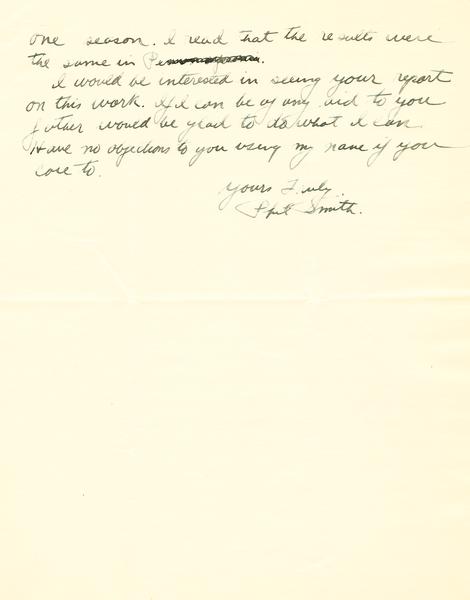 one season. I read that the results were
the same in
I would be interested in seeing your report
on this work. If I can be of any aid to you
further would be glad to do what I can.
Have no objections to you using my name if you
care to.
Yours Truly.
Smith.